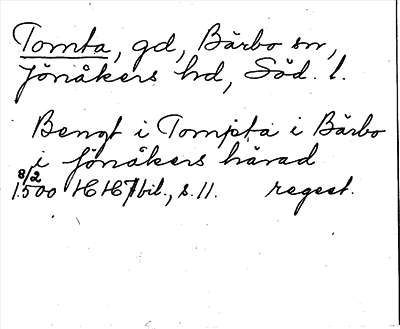 Tomta, gd, Bärbo sn,
Jönåkers hd, Söd. l.
Bengt i Tompta i Bärbo
i Jönåkers härad
8/2
1500 HH 7 bil., s. 11. regest.